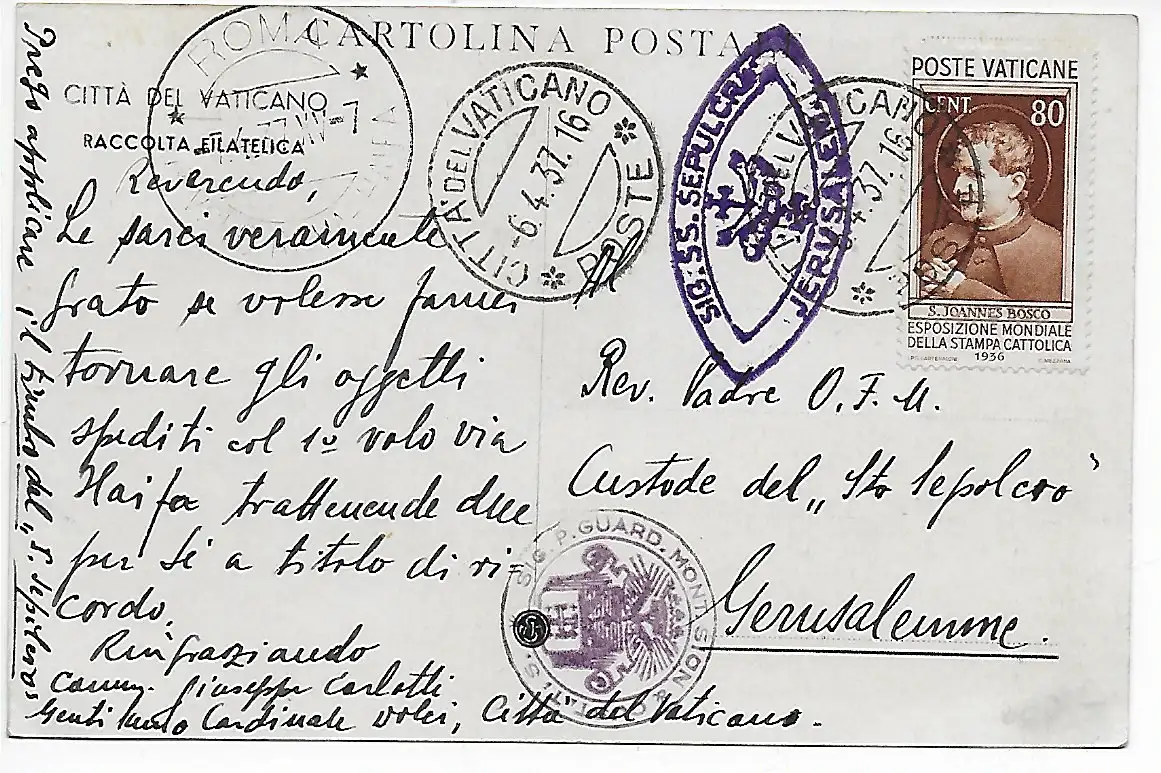 CARTOLINA POSTALE
ROMA
CITTÀ DEL VATICANO
RACCOLTA FILATELICA
CITTA' DEL VATICANO
-6.4.37.16
POSTE
SIG. SS. SEPULCRI
JERUSALEM
POSTE VATICANE
CENT. 80
S. JOANNES BOSCO
ESPOSIZIONE MONDIALE
DELLA STAMPA CATTOLICA
1936
Reverendo,
Le sarei veramente
grato se volesse farmi
tornare gli oggetti
spediti col 1º volo via
Haifa trattenendo due
per sé a titolo di ri=
cordo.
Ringraziando
Comm. Giuseppe Carlotti
Gentiluomo Cardinale, Città del Vaticano.
Prego applicare il timbro del „S. Sepolcro"
Rev. Padre O. F. M.
Custode del „Sto Sepolcro"
Gerusalemme.
SIG. P. GUARD. MONT. SION